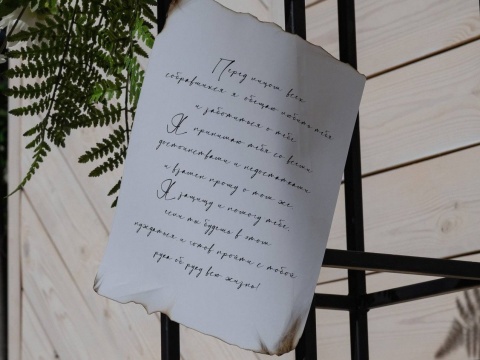 Перед лицом всех
собравшихся я обещаю любить тебя
и заботиться о тебе.
Я принимаю тебя со всеми
достоинствами и недостатками
и взамен прошу о том же
Я защищу и помогу тебе,
если ты будешь в этом
нуждаться и готов пройти с тобой
рука об руку всю жизнь!